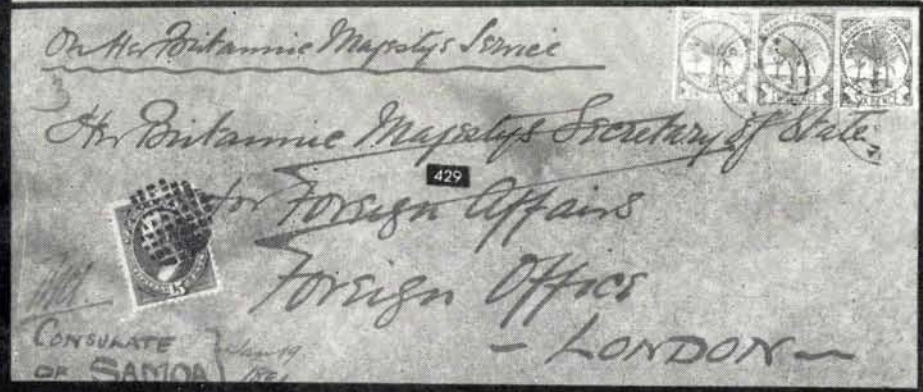 On Her Britannic Majestys Service
Her Britannic Majestys Secretary of State
429
for Foreign Affairs
Foreign Office
- LONDON -
5
CONSULATE
OF SAMOA
Jan 19